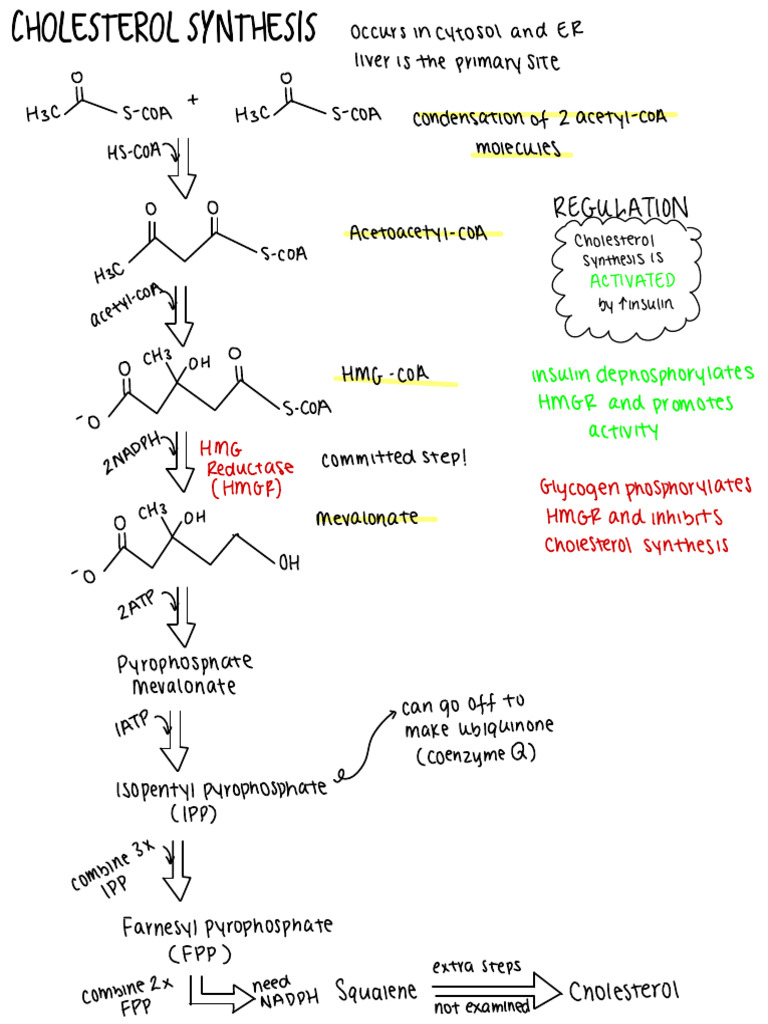 CHOLESTEROL SYNTHESIS
OCCURS IN CYTOSOL and ER
liver is the primary site
O
H3C
S-COA
+
O
H3C
S-COA
condensation of 2 acetyl-COA
molecules
HS-COA
O
O
H3C
S-COA
Acetoacetyl-COA
REGULATION
Cholesterol
synthesis is
ACTIVATED
by ↑insulin
acetyl-COA
CH3
OH
O
O
-O
S-COA
HMG-COA
insulin dephosphorylates
HMGR and promotes
activity
2NADPH
HMG
Reductase
(HMGR)
committed step!
Glycogen phosphorylates
HMGR and inhibits
cholesterol synthesis
CH3
OH
O
-O
OH
mevalonate
2ATP
Pyrophosphate
mevalonate
1ATP
can go off to
make ubiquinone
(coenzyme Q)
Isopentyl pyrophosphate
(IPP)
combine 3x
IPP
Farnesyl pyrophosphate
(FPP)
combine 2x
FPP
need
NADPH
Squalene
extra steps
not examined
Cholesterol